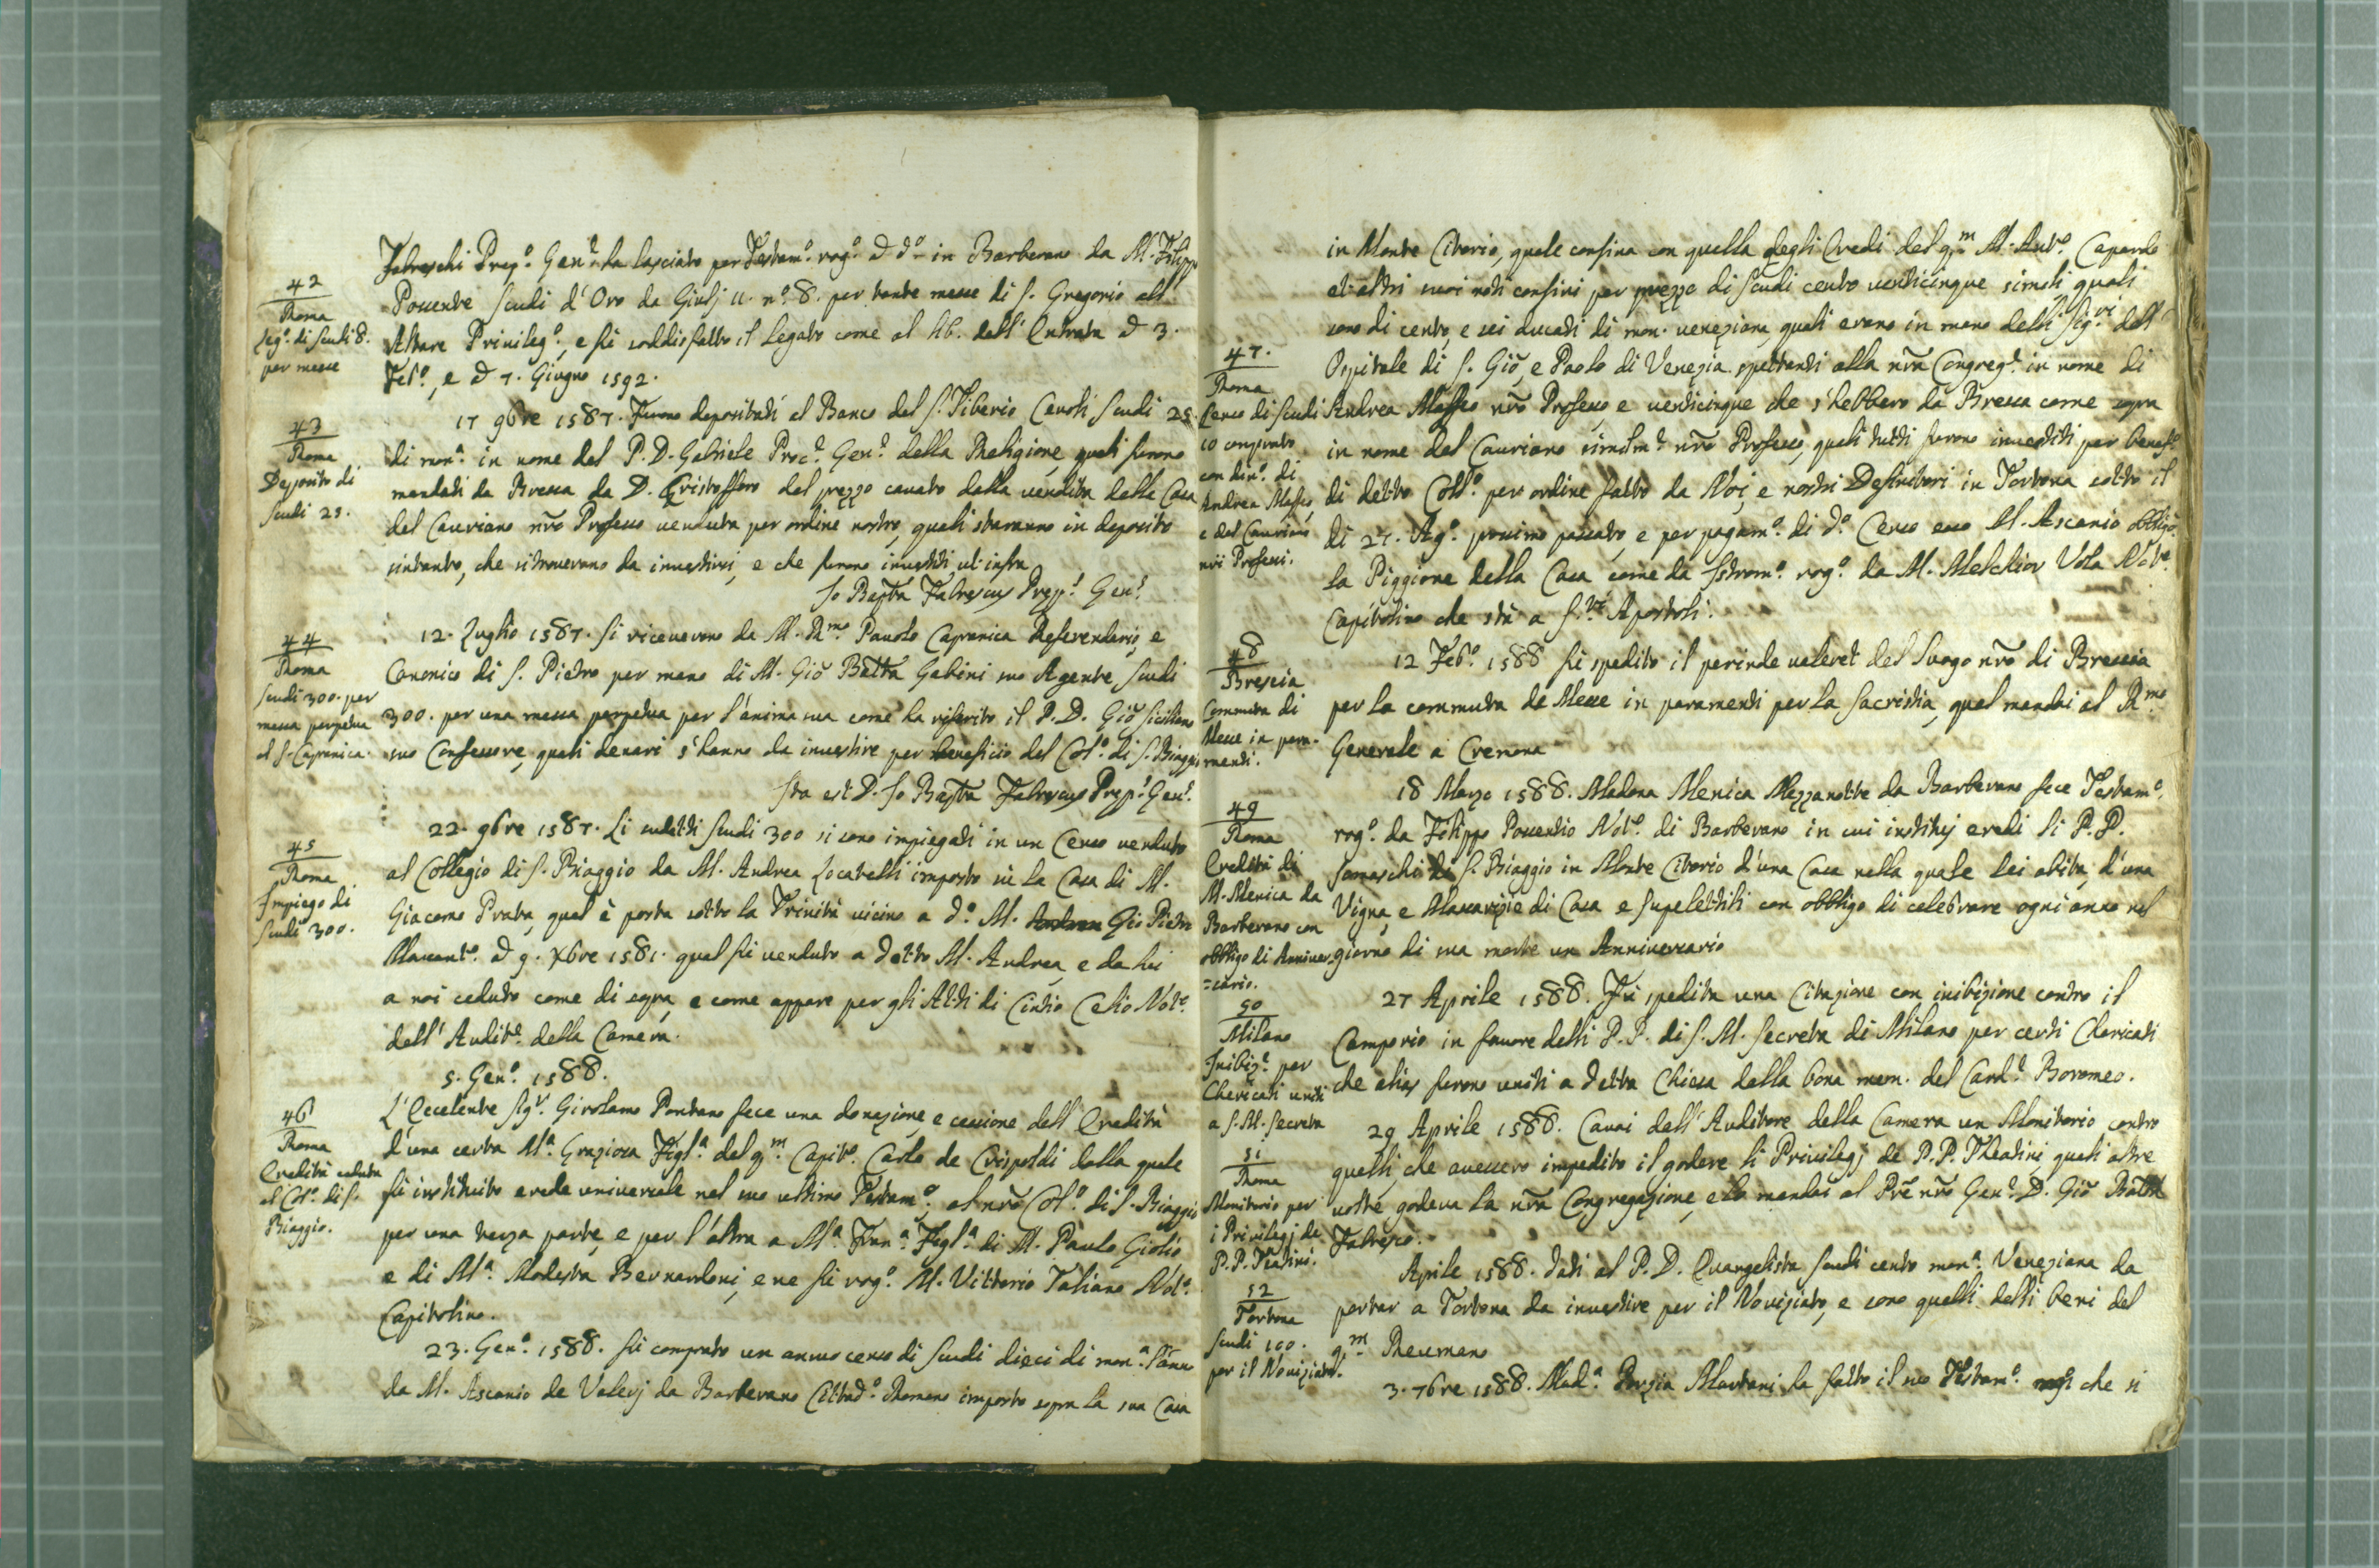 42
Roma
Leg.º di scudi 8.
per messe
Fabreschi Prep.º Gen.e ha lasciato per Testam.º rog.º d d.º in Barberano da M. Filippo
Pouentre scudi d'Oro da Giulj 11. nº. 8. per tante messe di S. Gregorio all'
Altare Privileg.º, e fù soddisfatto il Legato come al lib. dell'Entrata d 3.
Feb.º, e d 7. Giugno 1592.
43
Roma
Deposito di
scudi 25.
17 9bre 1587. Furono depositati al Banco del S. Tiberio Ceuoli scudi 25.
di mon.a in nome del P. D. Gabriele Proc.e Gen.e della Religione quali furono
mandati da Brescia da D. Cristofforo del prezzo cauato dalla vendita della Casa
del Cauriano nrõ Professo venduta per ordine nostro, quali staranno in deposito
sintanto, che si troverano da investirsi, e che furono investiti ut infra
Jo Bapta Fabrescus Prep.t Gen.t
44
Roma
scudi 300. per
messa perpetua
al S. Capranica.
12. Luglio 1587. si riceverono da M. Rmo Pauolo Capranica Referendario, e
Canonico di S. Pietro per mano di M. Giõ Batta Gabini suo Agente scudi
300. per una messa perpetua per l'anima sua come ha riferito il P. D. Giõ Siciliano
suo Confessore, quali denari s'hanno da investire per beneficio del Col.º di S. Biaggio
Ita est D. Jo Bapta Fabrescus Prep.t Gen.t
45
Roma
Impiego di
scudi 300.
22. 9bre 1587. Li sudetti scudi 300 si sono impiegati in un Censo venduto
al Collegio di S. Biaggio da M. Andrea Locatelli imposto sù la Casa di M.
Giacomo Prata, qual è posta sotto la Trinità vicino a d.º M. Andrea Gio Pietro
d 9. Xbre 1581. qual fù venduto a detto M. Andrea, e da lui
a noi ceduto come di sopra, e come appare per gli Atti di Cintio Celio Not.º
dell'Audit.e della Camera.
5. Gen.º 1588.
46
Roma
Eredità ceduta
al Col.º di S.
Biaggio.
L'Eccelente Sig.r Girolamo Pontano fece una donazione e cessione dell'Eredità
d'una certa M.a Graziosa Figl.a del q.m Capit.º Carlo de Crispoldi dalla quale
fù instituito erede universale nel suo ultimo Testam.º, al nrõ Col.º di S. Biaggio
per una terza parte, e per l'altra a M.a Fran.a Figl.a di M. Paulo Giolio
e di M.a Modesta Bernardoni, e ne fù rog.º M. Vittorio Taliano Not.º
Capitolino.
23. Gen.º 1588. fù comprato un annuo censo di scudi dieci di mon.a l'anno
da M. Ascanio de Valerj da Barberano Cittad.º Romano imposto sopra la sua Casa
in Monte Citorio, quale confina con quella degli Eredi del q.m M. Ant.º Capardo
et altri suoi noti confini per prezzo di scudi cento venticinque simili quali
sono di cento, e sei ducati di mon. veneziana, quali erano in mano delli Sig.ri dell'
Ospitale di S. Giõ, e Paolo di Venezia spettanti alla nrã Congreg.e in nome di
47.
Roma
Censo di scudi
10 comprato
con din.º di
Andrea Maffeo,
e del Cauriano
nrĩ Professi.
Andrea Maffeo nrõ Professo e venticinque che s'hebbero da Brescia come sopra
in nome del Cauriano similm.e nrõ Professo, quali tutti furono investiti per benef.º
di detto Coll.º per ordine fatto da Noi, e nostri Definitori in Tortona sotto il
di 27. Ag.º prossimo passato, e per pagam.º di d.º Censo esso M. Ascanio obbligò
la Piggione della Casa come da Istrom.º rog.º da M. Melchior Vola Not.º
Capitolino che stà a S.ti Apostoli.
48
Brescia
Commuta di
Messe in para-
menti.
12 Feb.º 1588 fù spedito il perinde valeret del Luogo nrõ di Brescia
per la commuta de Messe in paramenti per la sacristia, qual mandai al Rmo
Generale a Cremona
49
Roma
Eredità di
M. Menica da
Barberano con
obbligo di Anniver-
=sario.
18 Marzo 1588. Madona Menica Mezzanotte da Barberano fece Testam.º,
rog.º da Filippo Pouentio Not.º di Barberano in cui instituj eredi li P.P.
Somaschi di S. Biaggio in Monte Citorio d'una Casa nella quale lei abita, d'una
Vigna, e Massarizie di Casa e supelettili con obbligo di celebrare ogni anno nel
giorno di sua morte un Anniversario
50
Milano
Inibiz.e per
Chericati uniti
a S. M. Secreta
27 Aprile 1588. Fù spedita una Citazione con inibizione contro il
Camporio in favore delli P.P. di S. M. Secreta di Milano per certi Chericati
che alias furono uniti a detta Chiesa dalla bona mem. del Card.e Boromeo.
51
Roma
Monitorio per
i Privilegj de
P.P. Teatini.
29 Aprile 1588. Cavai dall'Auditore della Camera un Monitorio contro
quelli, che avessero impedito il godere li Privilegj de P.P. Theatini quali altre
volte godeva la nrã Congregazione, e lo mandai al Prẽ nrõ Gen.e D. Giõ Batta
Fabresco.
52
Tortona
scudi 100.
per il Noviziato.
Aprile 1588. dati al P. D. Evangelista scudi cento mon.a Veneziana da
portar a Tortona da investire per il Noviziato, e sono quelli delli beni del
q.m Reumano
3. 7bre 1588. Mad.a Porzia Mantani ha fatto il suo Testam.º che si